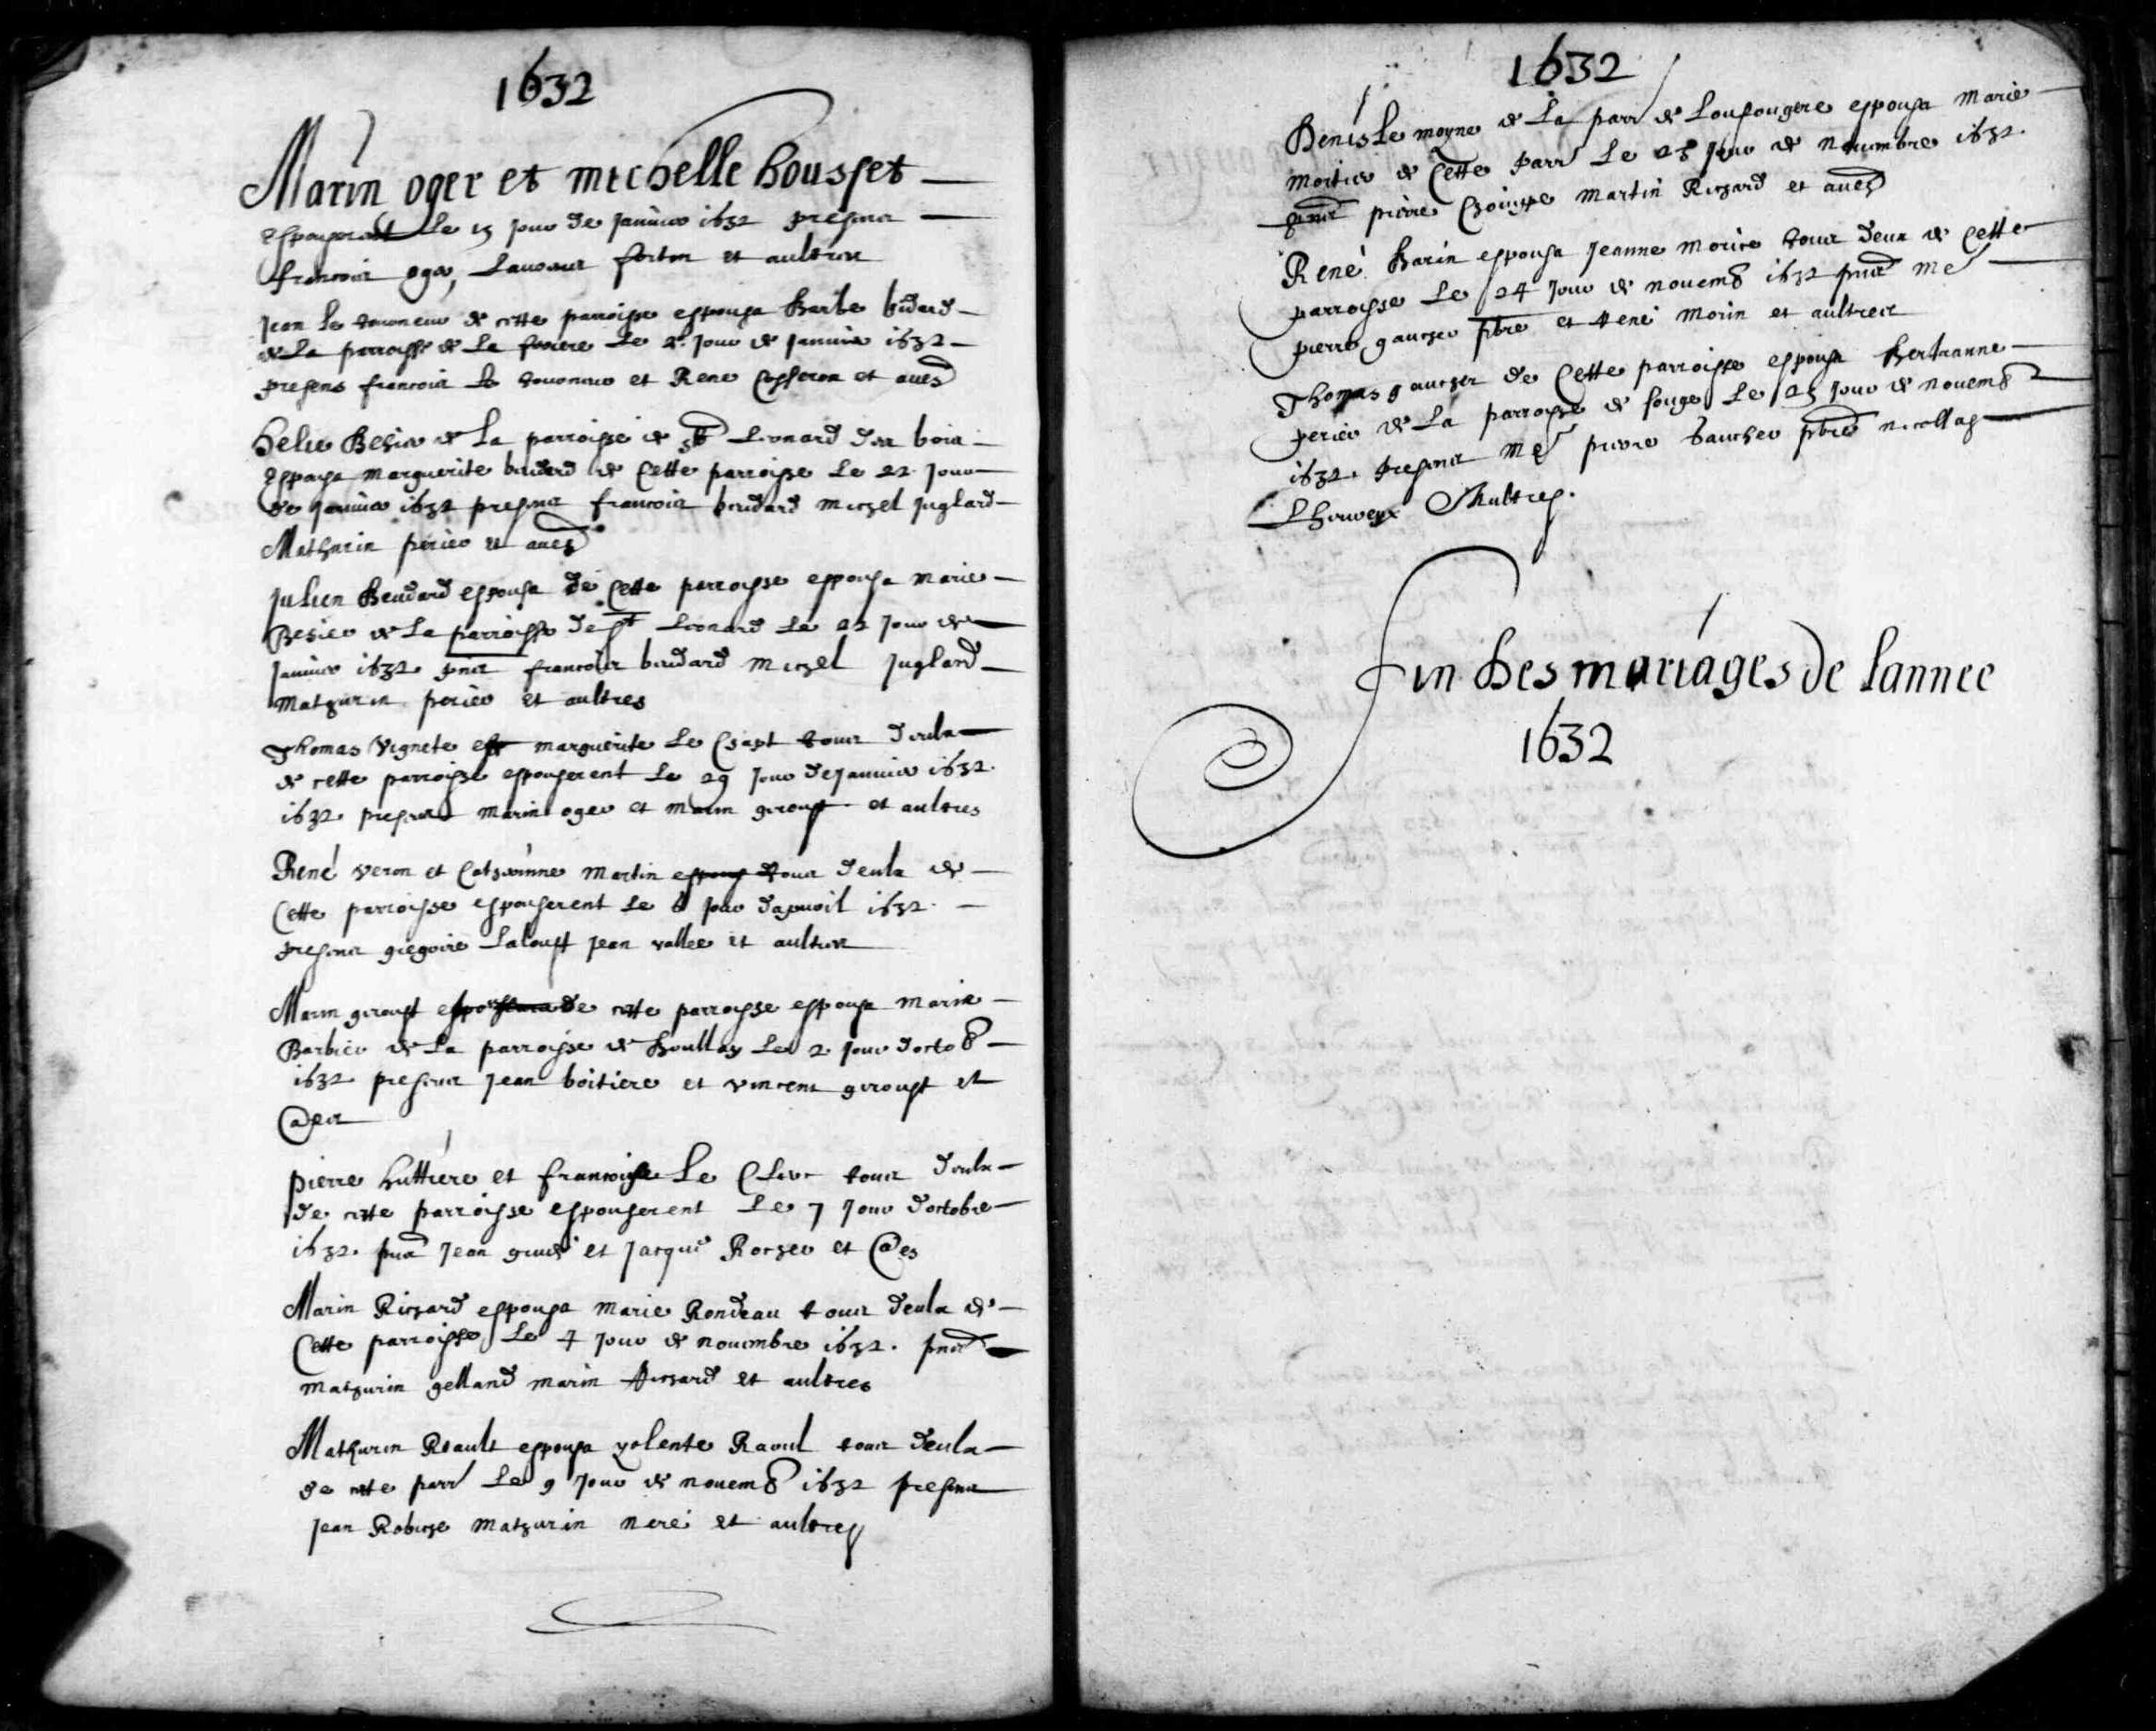 1632
Marin oger et michelle housset
espouserent le 15 jour de janvier 1632 presens
francois oger, Laurens forton et aultres
Jean le tourneur de cette parroisse espousa barbe bidard
de la parroisse de la le 2 jour de janvier 1632
presens francois le tourneur et Rene et aues
helie Besier de la parroisse de st Leonard des bois
Espousa marguerite beudard de Cette parroisse le 22 jour
de janvier 1632 presens francois beudard michel juglard
Mathurin perier et aues
Julien Beudard espousa de Cette parroisse espousa marie
Besier de la parroisse de st Leonard le 22 jour de
janvier 1632 pnts francois beudard michel juglard
mathurin perier et aultres
Thomas Vignete et marguerite le Chapt tous deulx
de cette parroisse espouserent le 29 jour de janvier 1632
1632 presens marin oger et marin geroust et aultres
René veron et Catherinne martin espous tous deulx de
Cette parroisse espouserent le 6 jour dapvril 1632
presens gregoire Laloust jean vallee et aultres
Marin geroust de cette parroisse espousa marie
Barbier de la parroisse de boullay le 2 jour docto8
1632 presens jean boitiere et vincent geroust et
@es
pierre huttiere et francoise le Clerc tous deulx
de cette parroisse espouserent le 7 jour doctobre
1632. pns jean et jacques Rocher et @es
Marin Richard espousa marie Rondeau tous deulx de
Cette parroisse le 4 jour de novembre 1632. pns
mathurin gelland marin richard et aultres
Mathurin Reault espousa yolente Raoul tous deulx
de cette parr le 9 jour de novem8 1632 presens
jean Robiche mathurin neré et aultres
1632
Denis le moyne de la parr de Loupougere espousa marie
moitier de Cette parr le 23 jour de novembre 1632.
pns pierre Choisne martin Richard et aues
René barin espousa jeanne morice tous deux de Cette
parroisse le 24 jour de novem8 1632 pns me
pierre gaucher pbre et rené morin et aultres
Thomas gaucher de Cette parroisse espousa bertranne
perier de la parroisse de souge le 25 jour de novem8
1632. presens me pierre Gaucher pbre nicollas
Lherveux &aultres.
Fin des mariages de lannee
1632